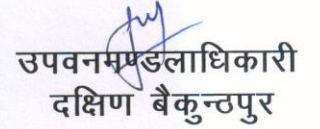 उपवनमण्डलाधिकारी
दक्षिण बैकुन्ठपुर